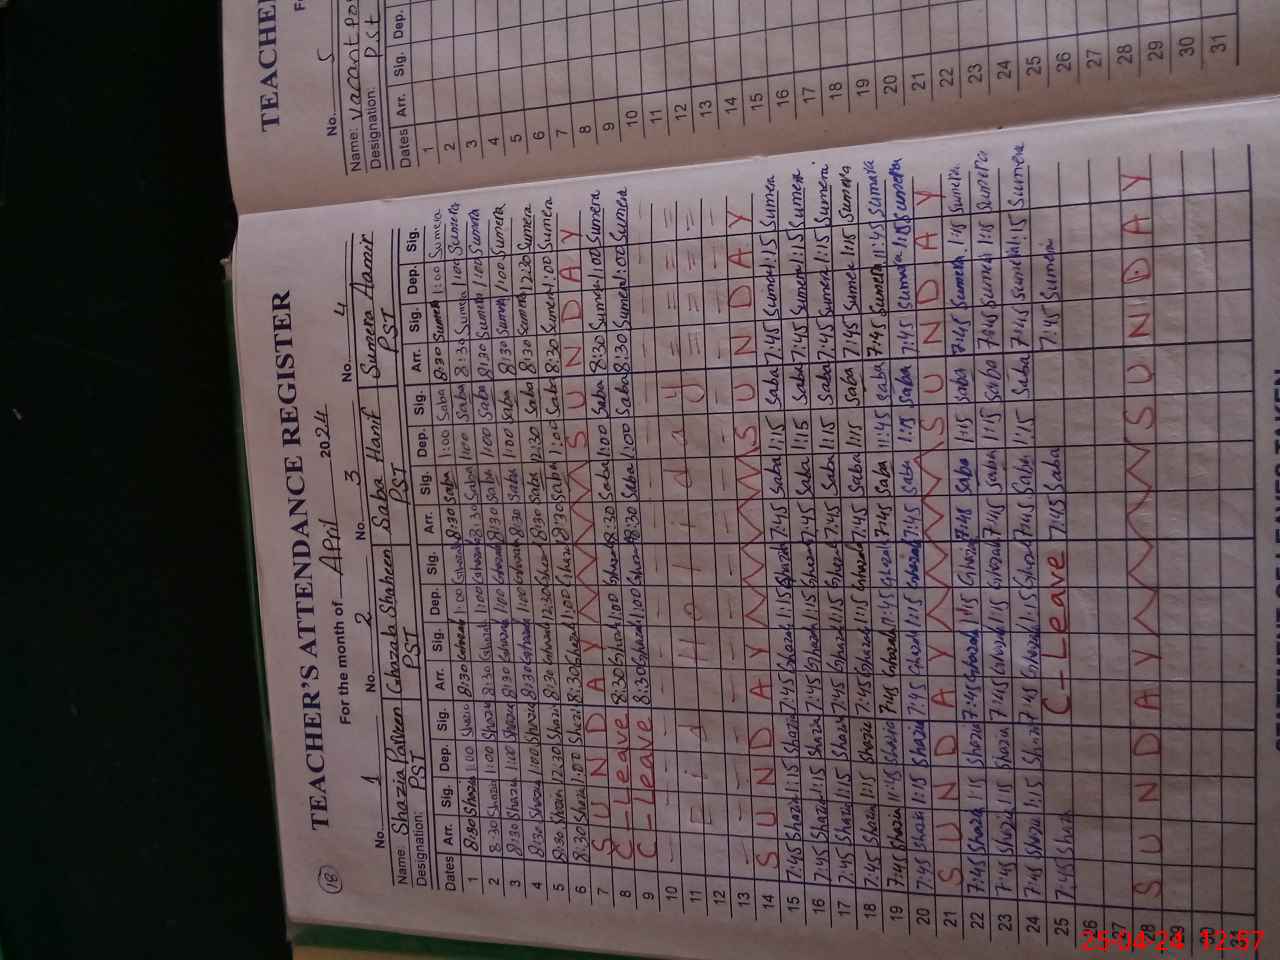 18
TEACHER'S ATTENDANCE REGISTER
For the month of April 2024
No. 1 No. 2 No. 3 No. 4
Name Shazia Parveen Ghazala Shaheen Saba Hanif Sumera Aamir
Designation: PST PST PST PST
Dates Arr. Sig. Dep. Sig. Arr. Sig. Dep. Sig. Arr. Sig. Dep. Sig. Arr. Sig. Dep. Sig.
1 8:30 Shazia 1:00 Shazia 8:30 Ghazala 1:00 Ghazala 8:30 Saba 1:00 Saba 8:30 Sumera 1:00 Sumera
2 8:30 Shazia 1:00 Shazia 8:30 Ghazala 1:00 Ghazala 8:30 Saba 1:00 Saba 8:30 Sumera 1:00 Sumera
3 8:30 Shazia 1:00 Shazia 8:30 Ghazala 1:00 Ghazala 8:30 Saba 1:00 Saba 8:30 Sumera 1:00 Sumera
4 8:30 Shazia 1:00 Shazia 8:30 Ghazala 1:00 Ghazala 8:30 Saba 1:00 Saba 8:30 Sumera 1:00 Sumera
5 8:30 Shazia 12:30 Shazia 8:30 Ghazala 12:30 Ghazala 8:30 Saba 12:30 Saba 8:30 Sumera 12:30 Sumera
6 8:30 Shazia 1:00 Shazia 8:30 Ghazala 1:00 Ghazala 8:30 Saba 1:00 Saba 8:30 Sumera 1:00 Sumera
7 SUNDAY SUNDAY
8 C-Leave 8:30 Ghazala 1:00 Ghazala 8:30 Saba 1:00 Saba 8:30 Sumera 1:00 Sumera
9 C-Leave 8:30 Ghazala 1:00 Ghazala 8:30 Saba 1:00 Saba 8:30 Sumera 1:00 Sumera
10
11
12
13
14 SUNDAY SUNDAY
15 7:45 Shazia 1:15 Shazia 7:45 Ghazala 1:15 Ghazala 7:45 Saba 1:15 Saba 7:45 Sumera 1:15 Sumera
16 7:45 Shazia 1:15 Shazia 7:45 Ghazala 1:15 Ghazala 7:45 Saba 1:15 Saba 7:45 Sumera 1:15 Sumera
17 7:45 Shazia 1:15 Shazia 7:45 Ghazala 1:15 Ghazala 7:45 Saba 1:15 Saba 7:45 Sumera 1:15 Sumera
18 7:45 Shazia 1:15 Shazia 7:45 Ghazala 1:15 Ghazala 7:45 Saba 1:15 Saba 7:45 Sumera 1:15 Sumera
19 7:45 Shazia 11:45 Shazia 7:45 Ghazala Ghazala 7:45 Saba 11:45 Saba 7:45 Sumera 11:45 Sumera
20 7:45 Shazia 1:15 Shazia 7:45 Ghazala 1:15 Ghazala 7:45 Saba 1:15 Saba 7:45 Sumera 1:15 Sumera
21 SUNDAY SUNDAY
22 7:45 Shazia 1:15 Shazia 7:45 Ghazala 1:15 Ghazala 7:45 Saba 1:15 Saba 7:45 Sumera 1:15 Sumera
23 7:45 Shazia 1:15 Shazia 7:45 Ghazala 1:15 Ghazala 7:45 Saba 1:15 Saba 7:45 Sumera 1:15 Sumera
24 7:45 Shazia 1:15 Shazia 7:45 Ghazala 1:15 Ghazala 7:45 Saba 1:15 Saba 7:45 Sumera 1:15 Sumera
25 7:45 Shazia C-Leave 7:45 Saba 7:45 Sumera
26
27
28 SUNDAY SUNDAY
29
30
31
TEACHE
No. 5
Name: Vaccant Po
Designation: PST
Dates Arr. Sig. Dep.
1
2
3
4
5
6
7
8
9
10
11
12
13
14
15
16
17
18
19
20
21
22
23
24
25
26
27
28
29
30
31
25-04-24 12:57